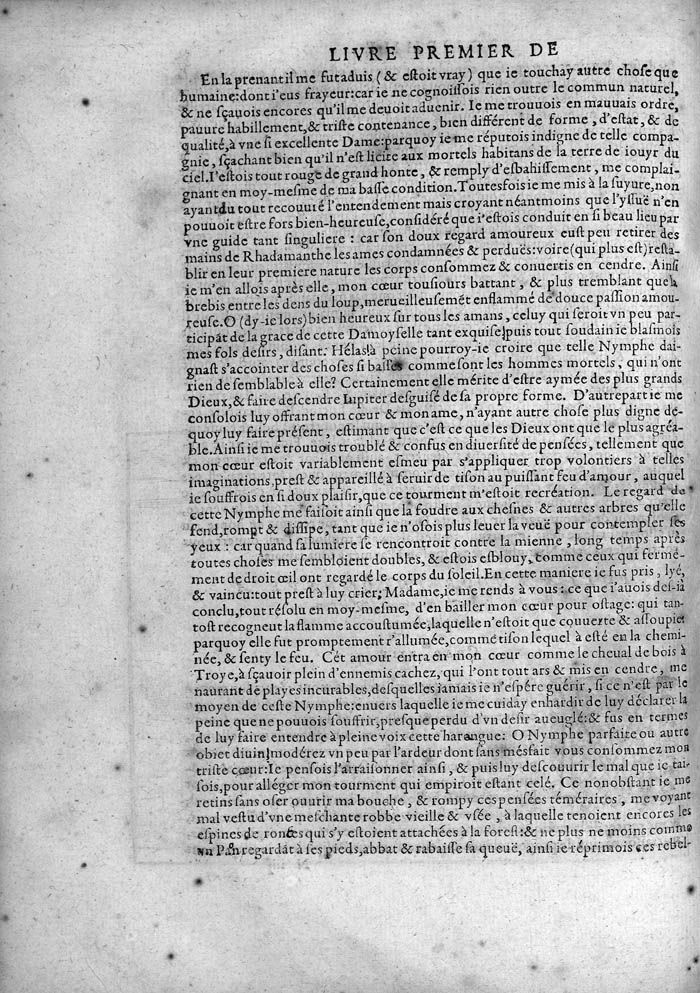 LIVRE PREMIER DE
En la prenant il me fut aduis (& eſtoit vray) que ie touchay autre choſe que
humaine:dont i'eus frayeur:car ie ne cognoiſſois rien outre le commun naturel,
& ne ſçauois encores qu'il me deuoit aduenir. Ie me trouuois en mauuais ordre,
pauure habillement,& triſte contenance, bien différent de forme, d'eſtat, & de
qualité,à vne ſi excellente Dame:parquoy ie me réputois indigne de telle compa-
gnie, ſçachant bien qu'il n'eſt licite aux mortels habitans de la terre de iouyr du
ciel.I'eſtois tout rouge de grand honte, & remply d'eſbahiſſement, me complai-
gnant en moy-meſme de ma baſſe condition.Toutesfois ie me mis à la ſuyure,non
ayant du tout recouuré l'entendement mais croyant néantmoins que l'yſſuë n'en
pouuoit eſtre fors bien-heureuſe,conſidéré que i'eſtois conduit en ſi beau lieu par
vne guide tant ſinguliere : car ſon doux regard amoureux euſt peu retirer des
mains de Rhadamanthe les ames condamnées & perduës:voire(qui plus eſt)reſta-
blir en leur premiere nature les corps conſommez & conuertis en cendre. Ainſi
ie m'en allois après elle, mon cœur touſiours battant, & plus tremblant que la
brebis entre les dens du loup,merueilleuſemēt enflammé de douce paſſion amou-
reuſe.O (dy-ie lors) bien heureux ſur tous les amans, celuy qui ſeroit vn peu par-
ticipāt de la grace de cette Damoyſelle tant exquiſe!puis tout ſoudain ie blaſmois
mes fols deſirs, diſant. Hélas!à peine pourroy-ie croire que telle Nymphe dai-
gnaſt s'accointer des choſes ſi baſſes comme ſont les hommes mortels, qui n'ont
rien de ſemblable à elle? Certainement elle mérite d'eſtre aymée des plus grands
Dieux,& faire deſcendre Iupiter deſguiſé de ſa propre forme. D'autrepart ie me
conſolois luy offrant mon cœur & mon ame, n'ayant autre choſe plus digne de-
quoy luy faire préſent, eſtimant que c'eſt ce que les Dieux ont que le plus agréa-
ble.Ainſi ie me trouuois troublé & confus en diuerſité de penſées, tellement que
mon cœur eſtoit variablement eſmeu par s'appliquer trop volontiers à telles
imaginations,preſt & appareillé à ſeruir de tiſon au puiſſant feu d'amour, auquel
ie ſouffrois en ſi doux plaiſir,que ce tourment m'eſtoit recréation. Le regard de
cette Nymphe me faiſoit ainſi que la foudre aux cheſnes & autres arbres qu'elle
fend,rompt & diſſipe, tant que ie n'oſois plus leuer la veuë pour contempler ſes
yeux : car quand ſa lumiere ſe rencontroit contre la mienne, long temps après
toutes choſes me ſembloient doubles, & eſtois eſblouy, comme ceux qui fermé-
ment de droit œil ont regardé le corps du ſoleil.En cette maniere ie fus pris, lyé,
& vaincu:tout preſt à luy crier; Madame,ie me rends à vous : ce que i'auois deſ-ià
conclu,tout réſolu en moy-meſme, d'en bailler mon cœur pour oſtage: qui tan-
toſt recogneut la flamme accouſtumée,laquelle n'eſtoit que couuerte & aſſoupie:
parquoy elle fut promptement r'allumée,comme tiſon lequel à eſté en la chemi-
née, & ſenty le feu. Cét amour entra en mon cœur comme le cheual de bois à
Troye,à ſçauoir plein d'ennemis cachez, qui l'ont tout ars & mis en cendre, me
naurant de playes incurables,deſquelles iamais ie n'eſpére guérir, ſi ce n'eſt par le
moyen de ceſte Nymphe:enuers laquelle ie me cuiday enhardir de luy déclarer la
peine que ne pouuois ſouffrir,preſque perdu d'vn deſir aueuglé:& fus en termes
de luy faire entendre à pleine voix cette harangue: O Nymphe parfaite ou autre
obiet diuin!modérez vn peu par l'ardeur dont ſans mésfait vous conſommez mon
triſte cœur:Ie penſois l'arraiſonner ainſi, & puis luy deſcouurir le mal que ie tai-
ſois,pour alléger mon tourment qui empiroit eſtant celé. Ce nonobſtant ie me
retins ſans oſer ouurir ma bouche, & rompy ces penſées téméraires, me voyant
mal veſtu d'vne meſchante robbe vieille & vſée, à laquelle tenoient encores les
eſpines de ronces qui s'y eſtoient attachées à la foreſt:& ne plus ne moins comme
vn Pan regardāt à ſes pieds,abbat & rabaiſſe ſa queuë, ainſi ie réprimois ces rebel-